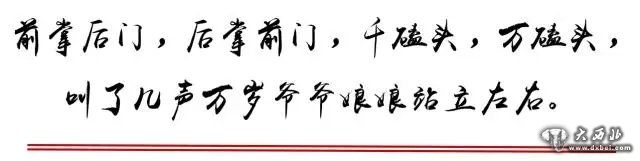 前掌后门，后掌前门，千磕头，万磕头，
叫了几声万岁爷爷娘娘站立左右。
大西北
www.dxbei.com